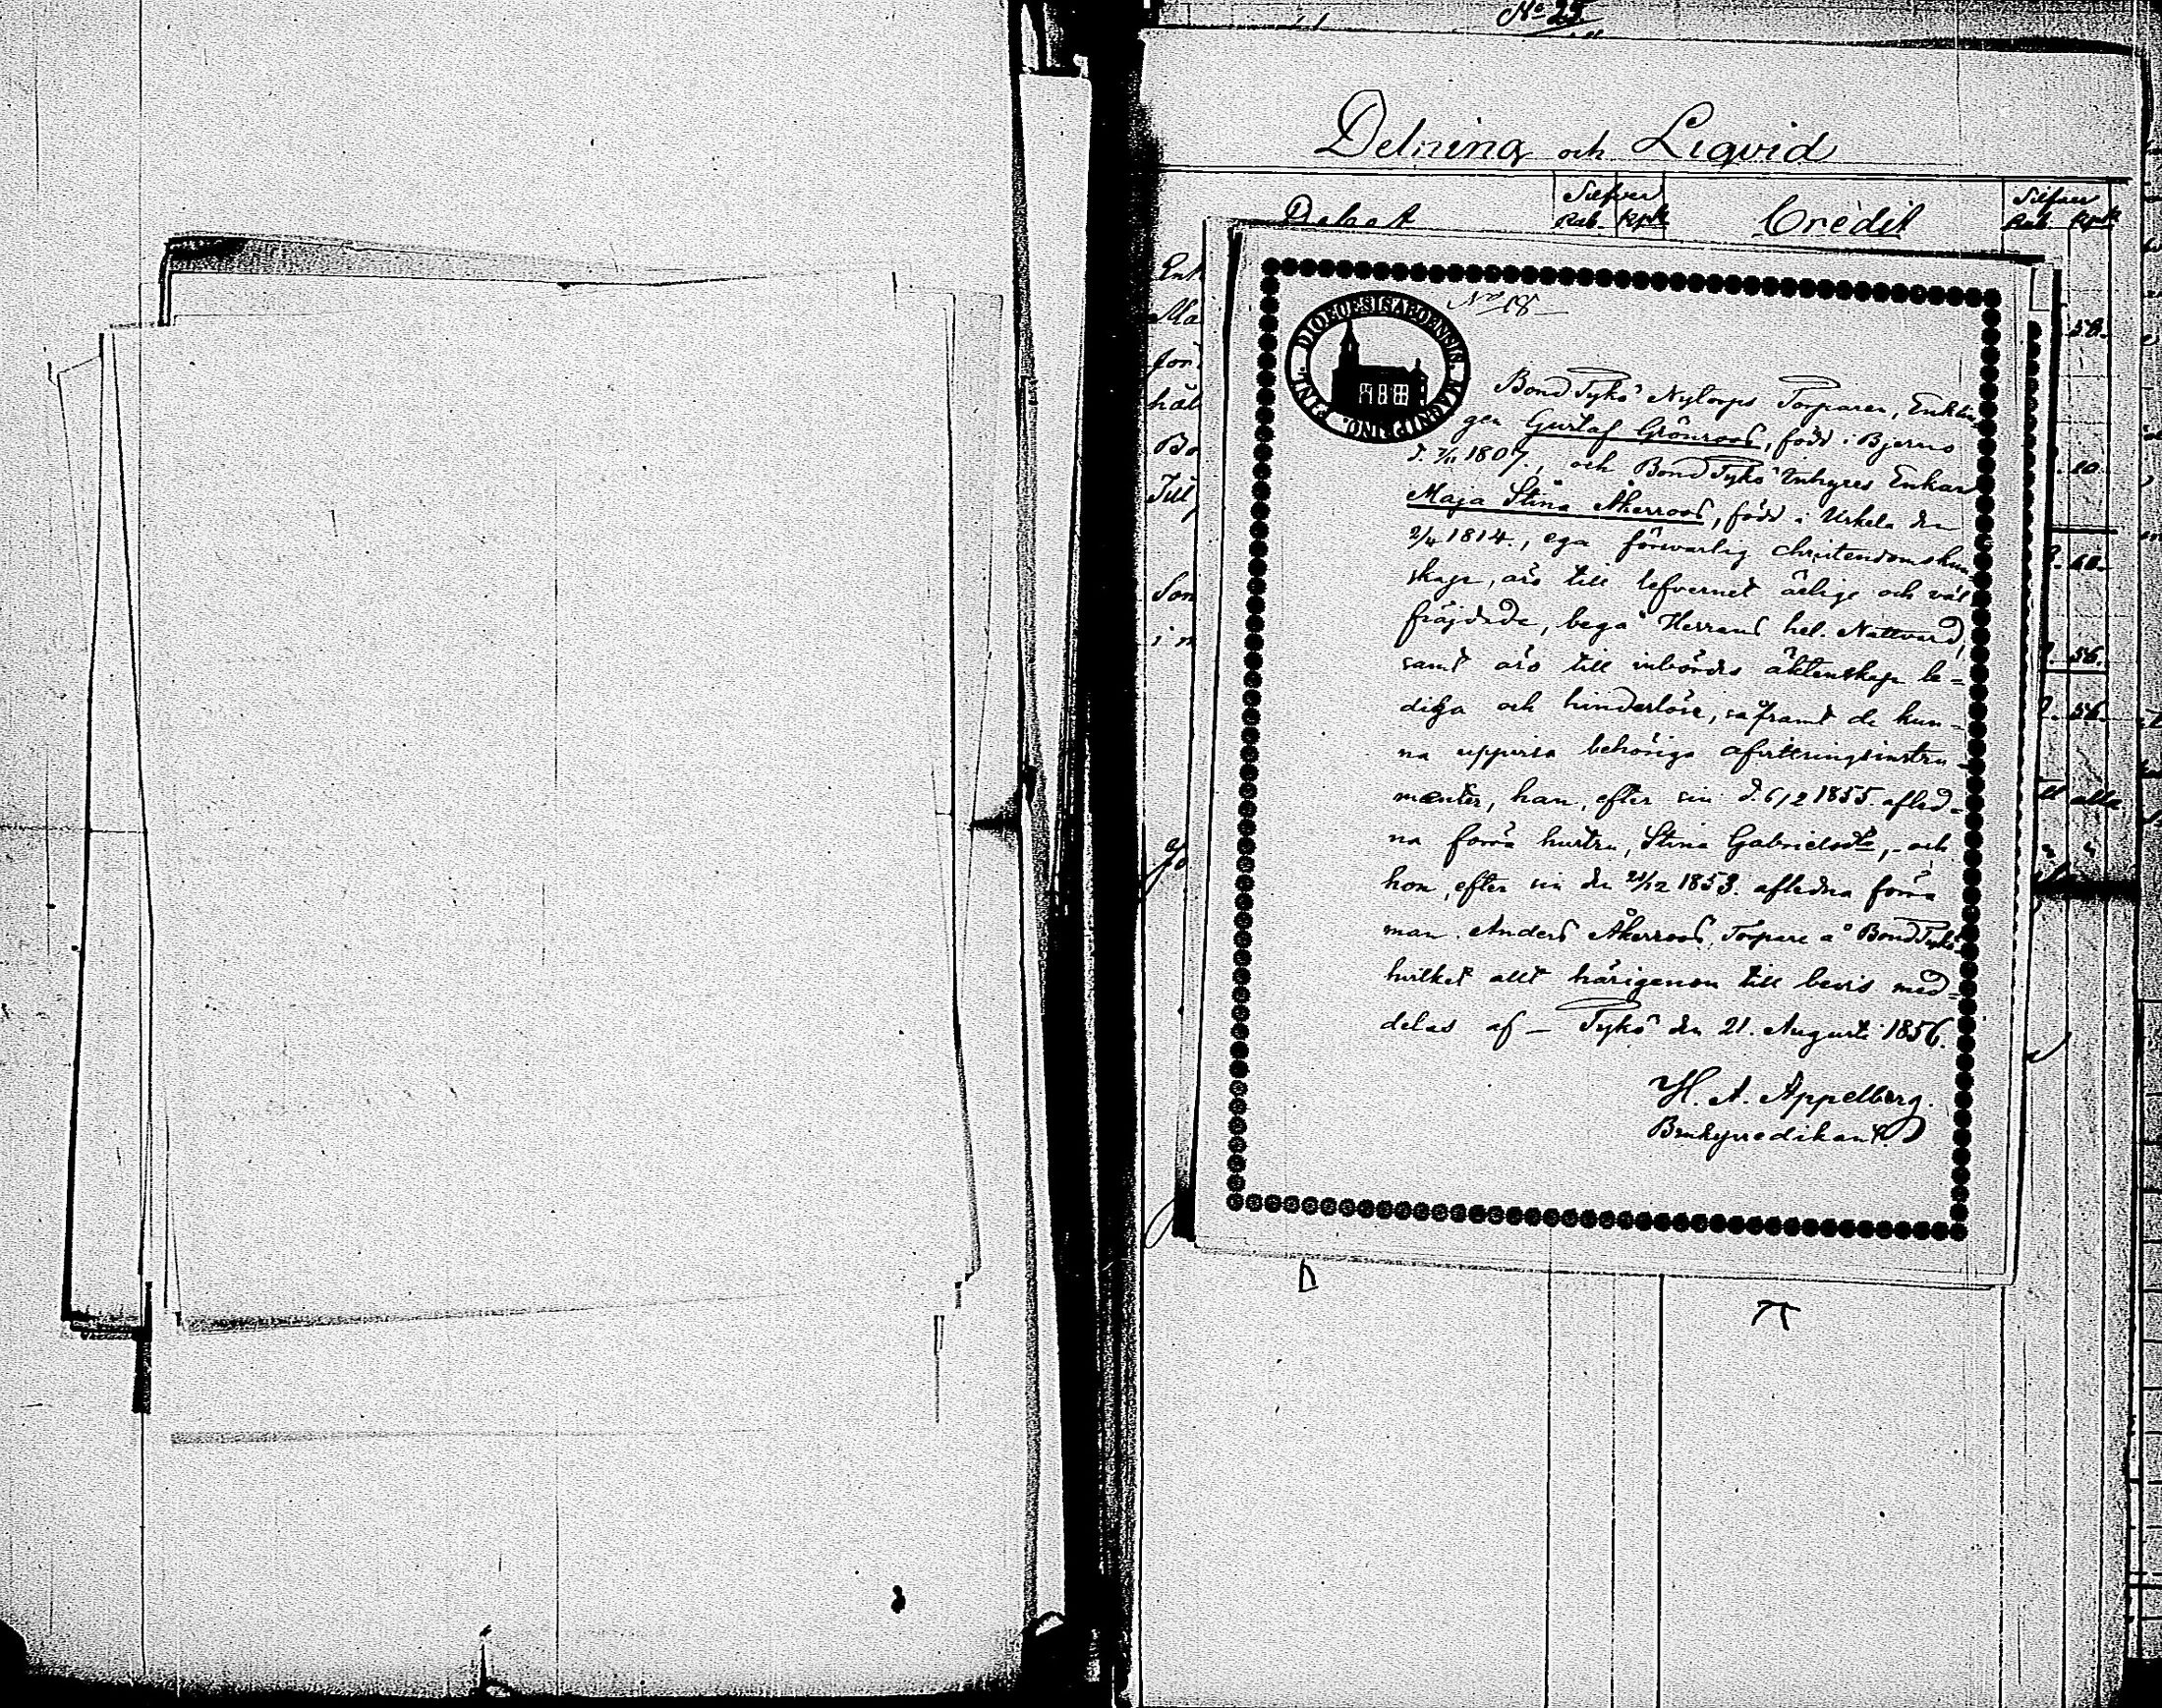 No 25
Delning och Liqvid
Debet
Silfver
Rub. Kpk
Credit
Silfver
Rub. Kpk
Ent
Ma
för
hål
Bo
Till
Son
i n
50.
10.
60.
56.
56.
alla
DIOECESIS ABOENSIS. MAGN. PRINC. FINL.
No 18
Bond Tykö Nytorps Torparen, Enklin-
gen Gustaf Grönroos, född i Bjerno
d. 7/11 1807., och Bond Tykö Inhyses Enkan
Maja Stina Åkerroos, född i Uskela den
2/4 1814., ega försvarlig christendomskun-
skap, äro till lefvernet ärlige och väl
fräjdade, begå Herrans hel. Nattvard,
samt äro till inbördes äktenskap le-
diga och hinderlöse, såframt de kun-
na uppvisa behöriga afvittringsinstru-
menter, han, efter sin d. 6/2 1855. aflid-
na förra hustru, Stina Gabrielsdtr, och
hon, efter sin den 21/12 1853. aflidna förra
man Anders Åkerroos, Torpare å Bond Tykö
hvilket allt härigenom till bevis med-
delas af — Tykö den 21. Augusti 1856.
H. A. Appelberg.
Brukspredikant.